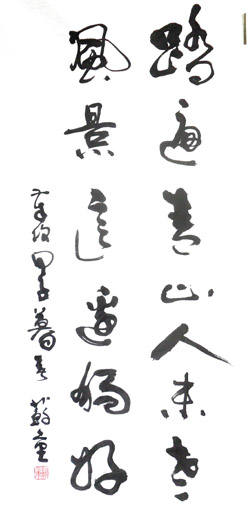 踏遍青山人未老
風景這邊獨好
甲子暮春